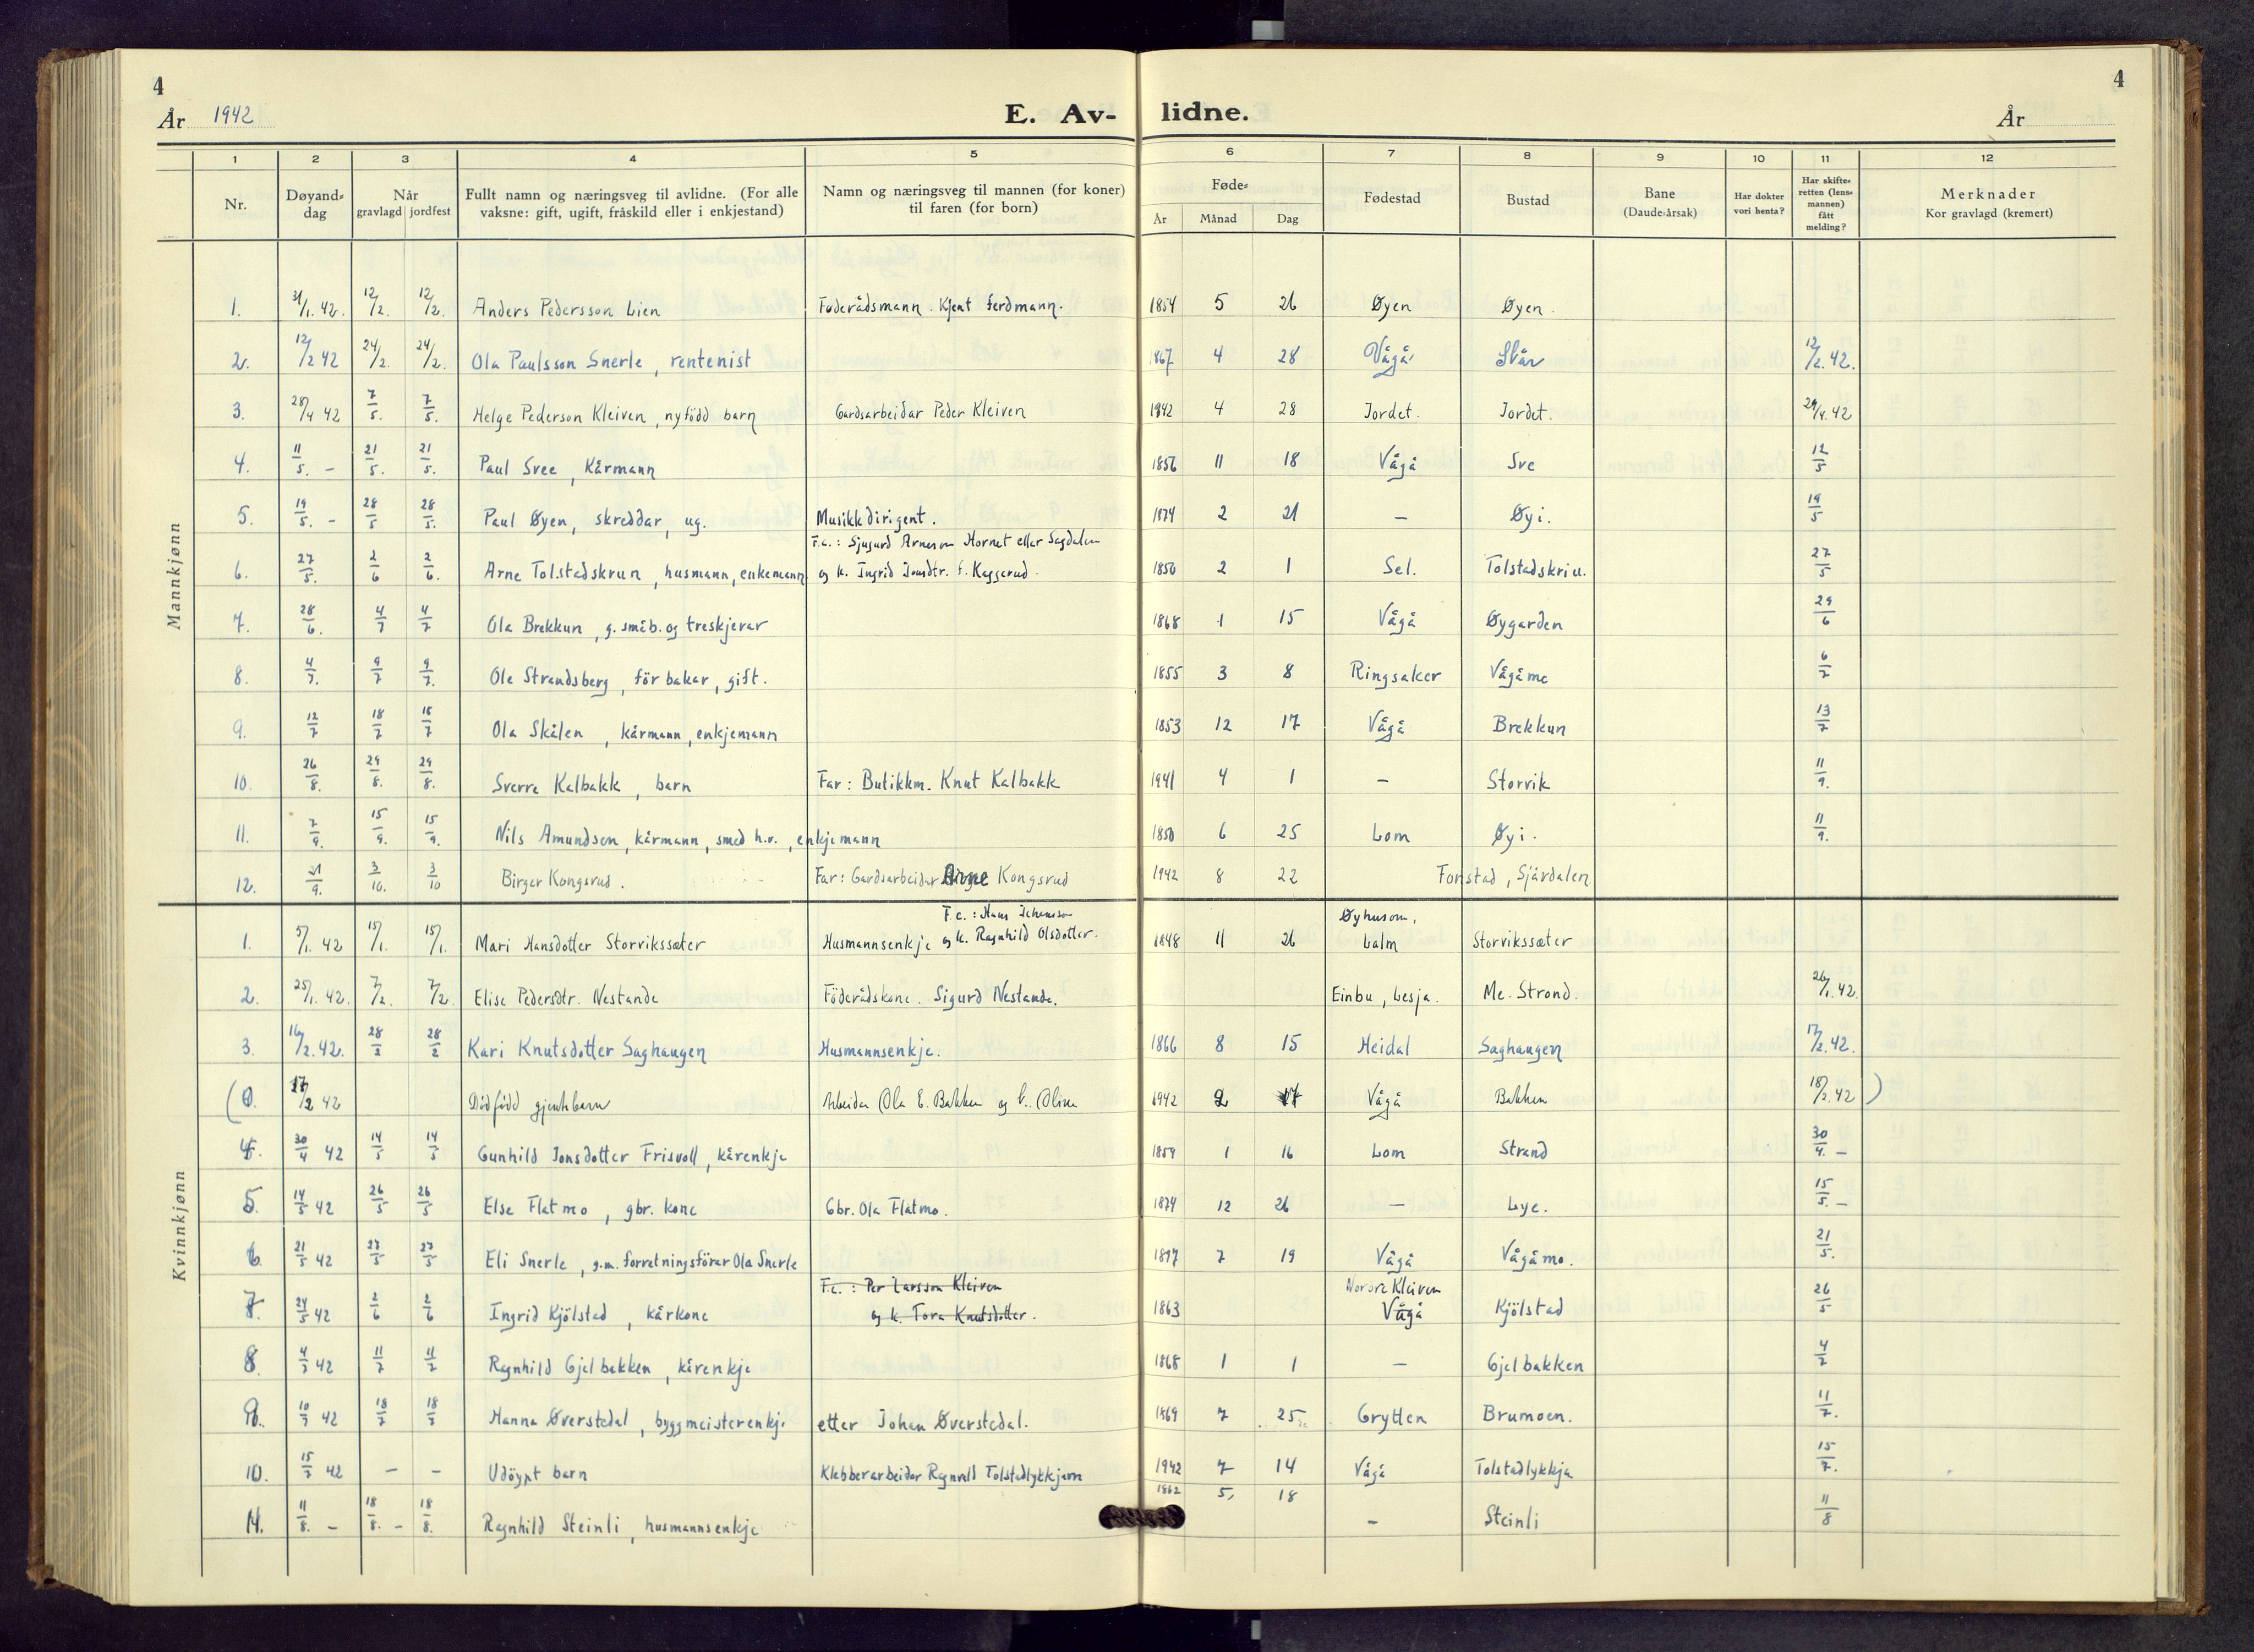 4
År 1942
E. Av-
lidne.
År
4
1 2 3 4 5 6 7 8 9 10 11 12
Nr.
Døyand-
dag
Når
gravlagd jordfest
Fullt namn og næringsveg til avlidne. (For alle
vaksne: gift, ugift, fråskild eller i enkjestand)
Namn og næringsveg til mannen (for koner)
til faren (for born)
Føde-
År Månad Dag
Fødestad
Bustad
Bane
(Daude-årsak)
Har dokter
vori henta?
Har skifte-
retten (lens-
mannen)
fått
melding?
Merknader
Kor gravlagd (kremert)
Mannkjønn
1. 31/1. 42. 12/2. 12/2. Anders Pedersson Lien Føderådsmann. Kjent ferdmann. 1854 5 26 Øyen Øyen.
2. 12/2 42 24/2. 24/2. Ola Paulsson Snerle, rentenist 1867 4 28 Vågå Skår 12/2. 42.
3. 28/4 42 7/5. 7/5. Helge Pederson Kleiven, nyfödd barn Gardsarbeidar Peder Kleiven 1942 4 28 Jordet. Jordet. 29/4. 42
4. 11/5. - 21/5. 21/5. Paul Svee, Kårmann 1856 11 18 Vågå Sve 12/5
5. 19/5. - 28/5 28/5. Paul Øyen, skreddar, ug. Musikkdirigent. 1874 2 21 - Øyi. 19/5
F.c.: Sjugurd Arneson Hornet ellar Sagdalen
6. 27/5. 2/6 2/6. Arne Tolstadskrun, husmann, enkemann og k. Ingrid Jonsdtr. f. Kaggerud. 1850 2 1 Sel. Tolstadskriu. 27/5
7. 28/6. 4/7 4/7 Ola Brekkun, g. småb. og treskjerar 1868 1 15 Vågå Øygarden 29/6
8. 4/7. 9/7 9/7. Ole Strandsberg, för bakar, gift. 1855 3 8 Ringsaker Vågåmo 6/7
9. 12/7 18/7 18/7 Ola Skålen, kårmann, enkjemann 1853 12 17 Vågå Brekkun 13/7
10. 26/8. 29/8. 29/8. Sverre Kalbakk, barn Far: Butikkm. Knut Kalbakk 1941 4 1 - Storvik 11/9.
11. 7/9. 15/9. 15/9. Nils Amundsen, kårmann, smed h.v., enkjemann 1850 6 25 Lom Øyi. 11/9.
12. 21/9. 3/10. 3/10 Birger Kongsrud. Far: Gardsarbeidar Arne Kongsrud 1942 8 22 Fonstad, Sjårdalen
Kvinnkjønn
F.c.: Hans Johanson Øyhusom,
1. 5/1. 42 15/1. 15/1. Mari Hansdotter Storvikssæter Husmannsenkje og k. Ragnhild Olsdotter. 1848 11 26 Lalm Storvikssæter
2. 25/1. 42. 7/2. 7/2. Elise Pedersdtr. Nestande Föderådskone. Sigurd Nestande. Einbu, Lesja. Me-Strond. 26/1. 42.
3. 16/2. 42. 28/2 28/2 Kari Knutsdotter Saghaugen Husmannsenkje. 1866 8 15 Heidal Saghaugen 17/2. 42.
(0. 17/2 42 Dödfödd gjentebarn Arbeidar Ola E. Bakken og k. Oline 1942 2 17 Vågå Bakken 18/2. 42 )
4. 30/4 42 14/5 14/5 Gunhild Jonsdotter Frisvoll, kårenkje 1859 1 16 Lom Strand 30/4. -
5. 14/5 42 26/5 26/5 Else Flatmo, gbr. kone Gbr. Ola Flatmo. 1874 12 26 - Lye. 15/5. -
6. 21/5 42 27/5 27/5 Eli Snerle, g.m. forretningsförar Ola Snerle 1877 7 19 Vågå Vågåmo. 21/5.
F.c.: Per Larsson Kleiven Nordre Kleiven
7 24/5 42 2/6 2/6 Ingrid Kjölstad, kårkone og k. Tora Knutsdotter. 1863 Vågå Kjölstad 26/5
8. 4/7 42 11/7 11/7 Ragnhild Gjelbakken, kårenkje 1868 1 1 - Gjelbakken 4/7
9. 10/7 42 18/7 18/7 Hanna Øverstedal, byggmeisterenkje etter Johan Øverstedal. 1869 7 25 Grytten Brumoen. 11/7.
10. 15/7 42 - - Udöypt barn Klebberarbeidar Ragnvald Tolstadlykkjom 1942 7 14 Vågå Tolstadlykkja 15/7.
11. 11/8. - 18/8. - 18/8. Ragnhild Steinli, husmannsenkje 1862 5, 18 - Steinli 11/8